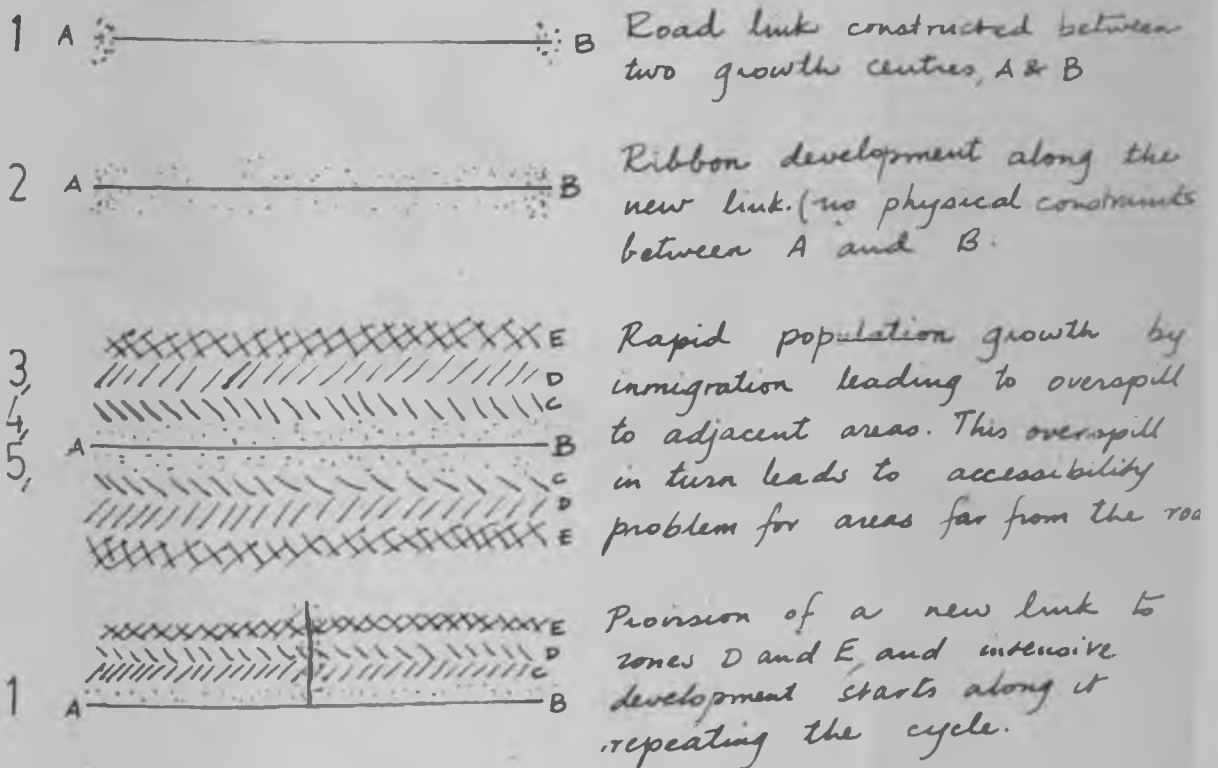 1 A B Road link constructed between
two growth centres, A & B
2 A B Ribbon development along the
new link. (no physical constraints
between A and B.
3, 4, 5,
E
D
C
A B
C
D
E
Rapid population growth by
inmigration leading to overspill
to adjacent areas. This overspill
in turn leads to accessibility
problem for areas far from the roa
1
E
D
C
A B
Provision of a new link to
zones D and E, and intensive
development starts along it
repeating the cycle.